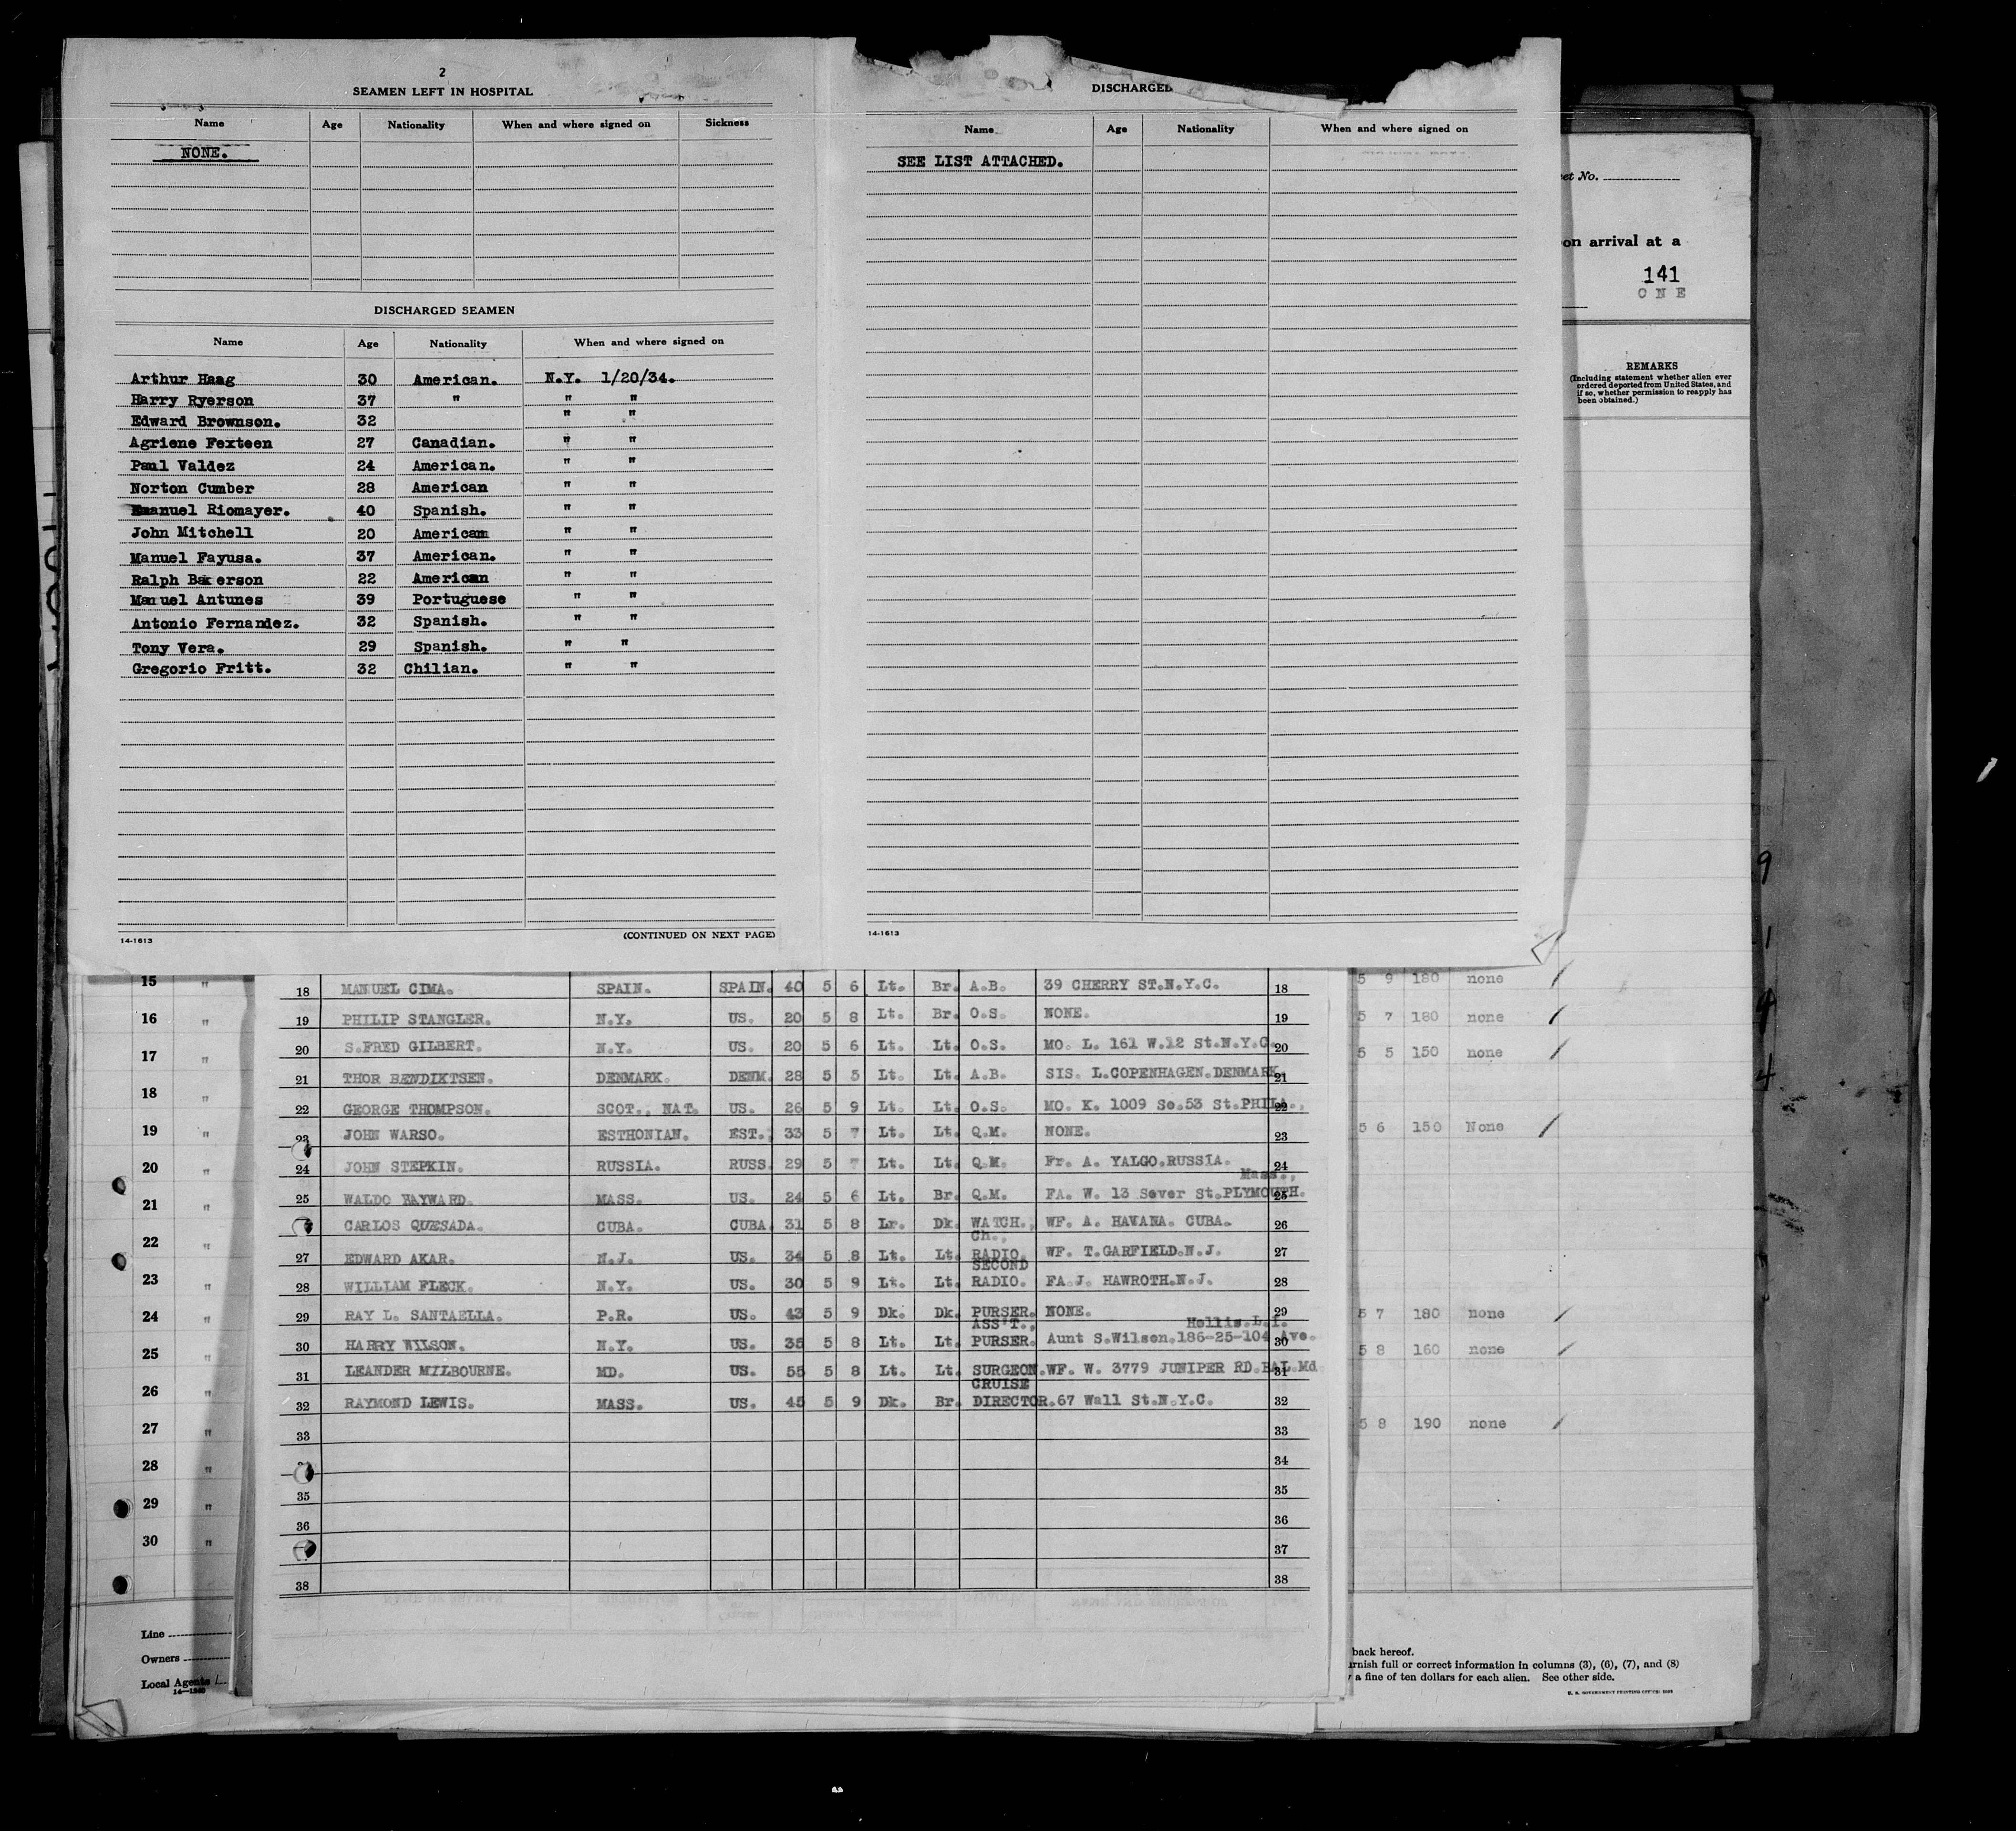 2
SEAMEN LEFT IN HOSPITAL
Name Age Nationality When and where signed on Sickness
NONE.
DISCHARGED SEAMEN
Name Age Nationality When and where signed on
Arthur Haag 30 American. N.Y. 1/20/34.
Harry Ryerson 37 " " "
Edward Brownson. 32 " "
Agriene Fexteen 27 Canadian. " "
Paul Valdez 24 American. " "
Norton Cumber 28 American " "
Emanuel Riomayer. 40 Spanish. " "
John Mitchell 20 American " "
Manuel Fayusa. 37 American. " "
Ralph Bakerson 22 American " "
Manuel Antunes 39 Portuguese " "
Antonio Fernandez. 32 Spanish. " "
Tony Vera. 29 Spanish. " "
Gregorio Fritt. 32 Chilian. " "
14-1613 (CONTINUED ON NEXT PAGE)
DISCHARGED
Name Age Nationality When and where signed on
SEE LIST ATTACHED.
14-1613
et No.
on arrival at a
141
ONE
REMARKS
(Including statement whether alien ever
ordered deported from United States, and
if so, whether permission to reapply has
been obtained.)
9
1
4
4
15 "
16 "
17 "
18 "
19 "
20 "
21 "
22 "
23 "
24 "
25 "
26 "
27 "
28 "
29 "
30 "
Line
Owners
Local Agents
18 MANUEL CIMA. SPAIN. SPAIN. 40 5 6 Lt. Br. A.B. 39 CHERRY ST.N.Y.C. 18
19 PHILIP STANGLER. N.Y. US. 20 5 8 Lt. Br. O.S. NONE. 19
20 S.FRED GILBERT. N.Y. US. 20 5 6 Lt. Lt. O.S. MO. L. 161 W.12 St.N.Y.C. 20
21 THOR BENDIKTSEN. DENMARK. DENM. 28 5 5 Lt. Lt. A.B. SIS. L.COPENHAGEN.DENMARK 21
22 GEORGE THOMPSON. SCOT., NAT. US. 26 5 9 Lt. Lt. O.S. MO. K. 1009 So.53 St.PHILA., 22
23 JOHN WARSO. ESTHONIAN. EST. 33 5 7 Lt. Lt. Q.M. NONE. 23
24 JOHN STEPKIN. RUSSIA. RUSS. 29 5 7 Lt. Lt. Q.M. Fr. A. YALGO.RUSSIA. 24
Mass.,
25 WALDO HAYWARD. MASS. US. 24 5 6 Lt. Br. Q.M. FA. W. 13 Sever St.PLYMOUTH. 25
CARLOS QUESADA. CUBA. CUBA. 31 5 8 Lr. Dk. WATCH. WF. A. HAVANA. CUBA. 26
Ch.,
27 EDWARD AKAR. N.J. US. 34 5 8 Lt. Lt. RADIO. WF. T.GARFIELD.N.J. 27
SECOND
28 WILLIAM FLECK. N.Y. US. 30 5 9 Lt. Lt. RADIO. FA.J. HAWROTH.N.J. 28
29 RAY L. SANTAELLA. P.R. US. 43 5 9 Dk. Dk. PURSER. NONE. 29
ASS'T., Hollis.L.I.
30 HARRY WILSON. N.Y. US. 35 5 8 Lt. Lt. PURSER. Aunt S.Wilson.186-25-104 Ave. 30
31 LEANDER MILBOURNE. MD. US. 55 5 8 Lt. Lt. SURGEON. WF. W. 3779 JUNIPER RD.BAL.Md 31
CRUISE
32 RAYMOND LEWIS. MASS. US. 45 5 9 Dk. Br. DIRECTOR. 67 Wall St.N.Y.C. 32
33 33
34
35 35
36 36
37
38 38
5 9 180 none
5 7 180 none
5 5 150 none
5 6 150 None
5 7 180 none
5 8 160 none
5 8 190 none
back hereof.
urnish full or correct information in columns (3), (6), (7), and (8)
a fine of ten dollars for each alien. See other side.